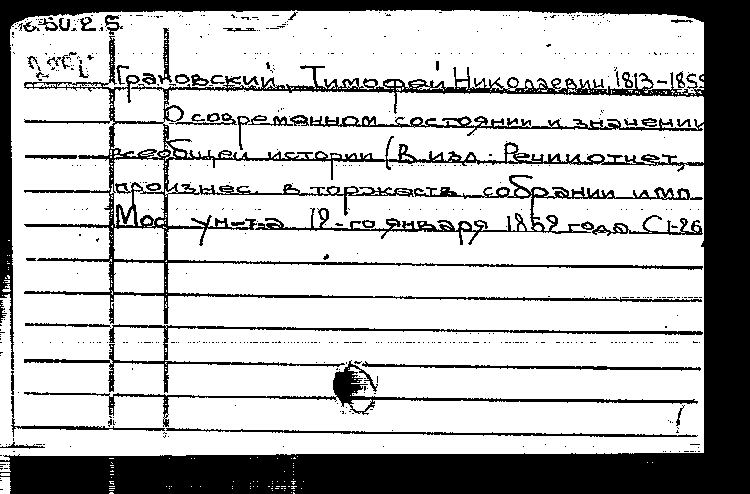 Грановский, Тимофей Николаевич, 1813-1855
О современном состоянии и значении
всеобщей истории (В изд.: Речи и отчет,
произнес. в торжеств. собрании имп.
Мос ун-та 12-го января 1852 года С 1-26